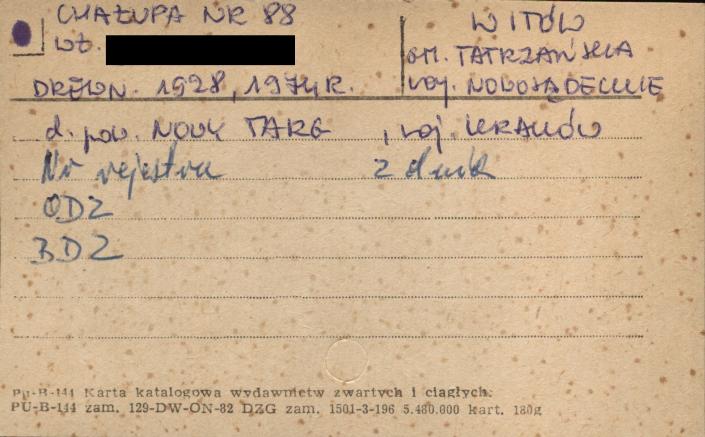 CHAŁUPA NR 88
wł.
DREWN. 1928, 1974 R.
WITÓW
GM. TATRZAŃSKA
woj. NOWOSĄDECKIE
d. pow. NOWY TARG , woj. KRAKÓW
Nr rejestru z dnia
ODZ
BDZ
PU-B-144 Karta katalogowa wydawnictw zwartych i ciągłych.
PU-B-144 zam. 129-DW-ON-82 DZG zam. 1501-3-196 5.480.000 kart. 180g